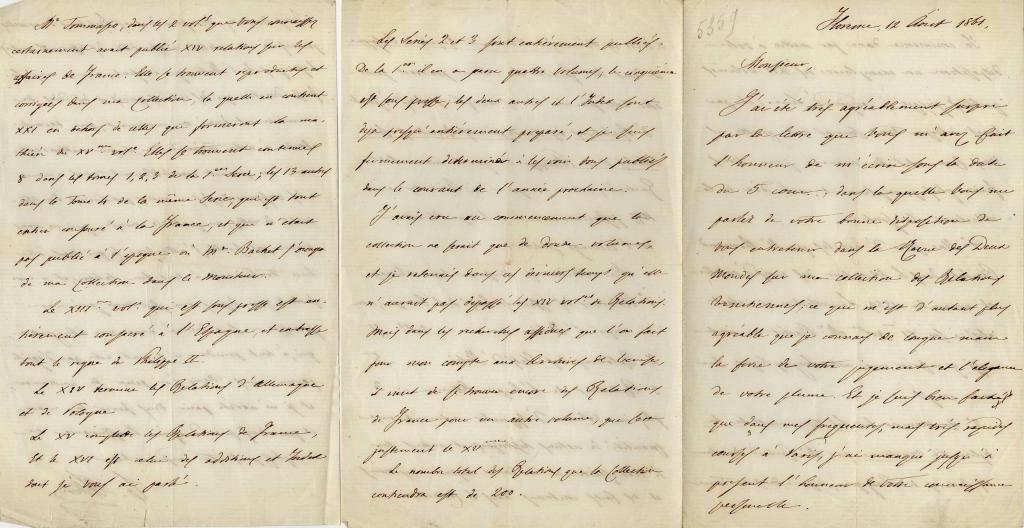 Mr. Tommaseo, dans les 2 vols. que vous connaissez
certainement avait publié XIV relations sur les
affaires de France. Elles se trouvent reproduites et
corrigées dans ma Collection, la quelle en contient
XXI en dehors de celles que formeront la ma-
tière du XVme vol. Elles se trouvent contenues
8 dans les tomes 1, 2, 3 de la 1ère Serie; les 13 autres
dans le Tome 4 de la même Série, qui est tout
entier consacré à la France, et que n'était
pas publié à l'époque où Mr. Baschet s'occupa
de ma Collection dans le Moniteur.
Le XIII vol. que est sous presse est en-
tièrement consacré à l'Espagne, et embrasse
tout le regne de Philippe II.
Le XIV termine les Relations d'Allemagne
et de Pologne.
Le XV complette les Relations de France,
Et le XVI est celui des additions et Index
dont je vous ai parlé.
Les Series 2 et 3 sont entièrement publiées.
De la 1ère il en a paru quatre volumes; le cinquième
est sous presse; les deux autres et l'Index sont
déjà presqu'entièrement preparé, et je suis
fermement déterminé à les voir tous publiés
dans le courant de l'année prochaine.
J'avais cru au commencement que la
collection ne serait que de douze volumes,
et je retenais dans ces derniers temps qu'elle
n'aurait pas dépassé les XIV vols. de Relations.
Mais dans les recherches assidues que l'on fait
pour mon compte aux Archives de Venise,
il vient de se trouver encore des Relations
de France pour un autre volume, que sera
justement le XVme
Le nombre total des Relations que la Collection
contiendra est de 200.
5359
Florence, 12 Août 1861.
Monsieur,
J'ai été très agréablement surpris
par la lettre que Vous m'avez fait
l'honneur de m'écrire sous la date
du 5 cour., dans la quelle Vous me
parlez de votre bonne disposition de
Vous entretenir dans la Revue des Deux
Mondes sur ma collection des Relations
Venitiennes; ce que m'est d'autant plus
agréable que je connais de longue main
la force de votre jugement et l'élégance
de votre plume. Et je suis bien faché
que dans mes frequentes, mais très rapides
courses à Paris, j'ai manqué jusqu'à
present l'honneur de Votre connaissance
personelle.